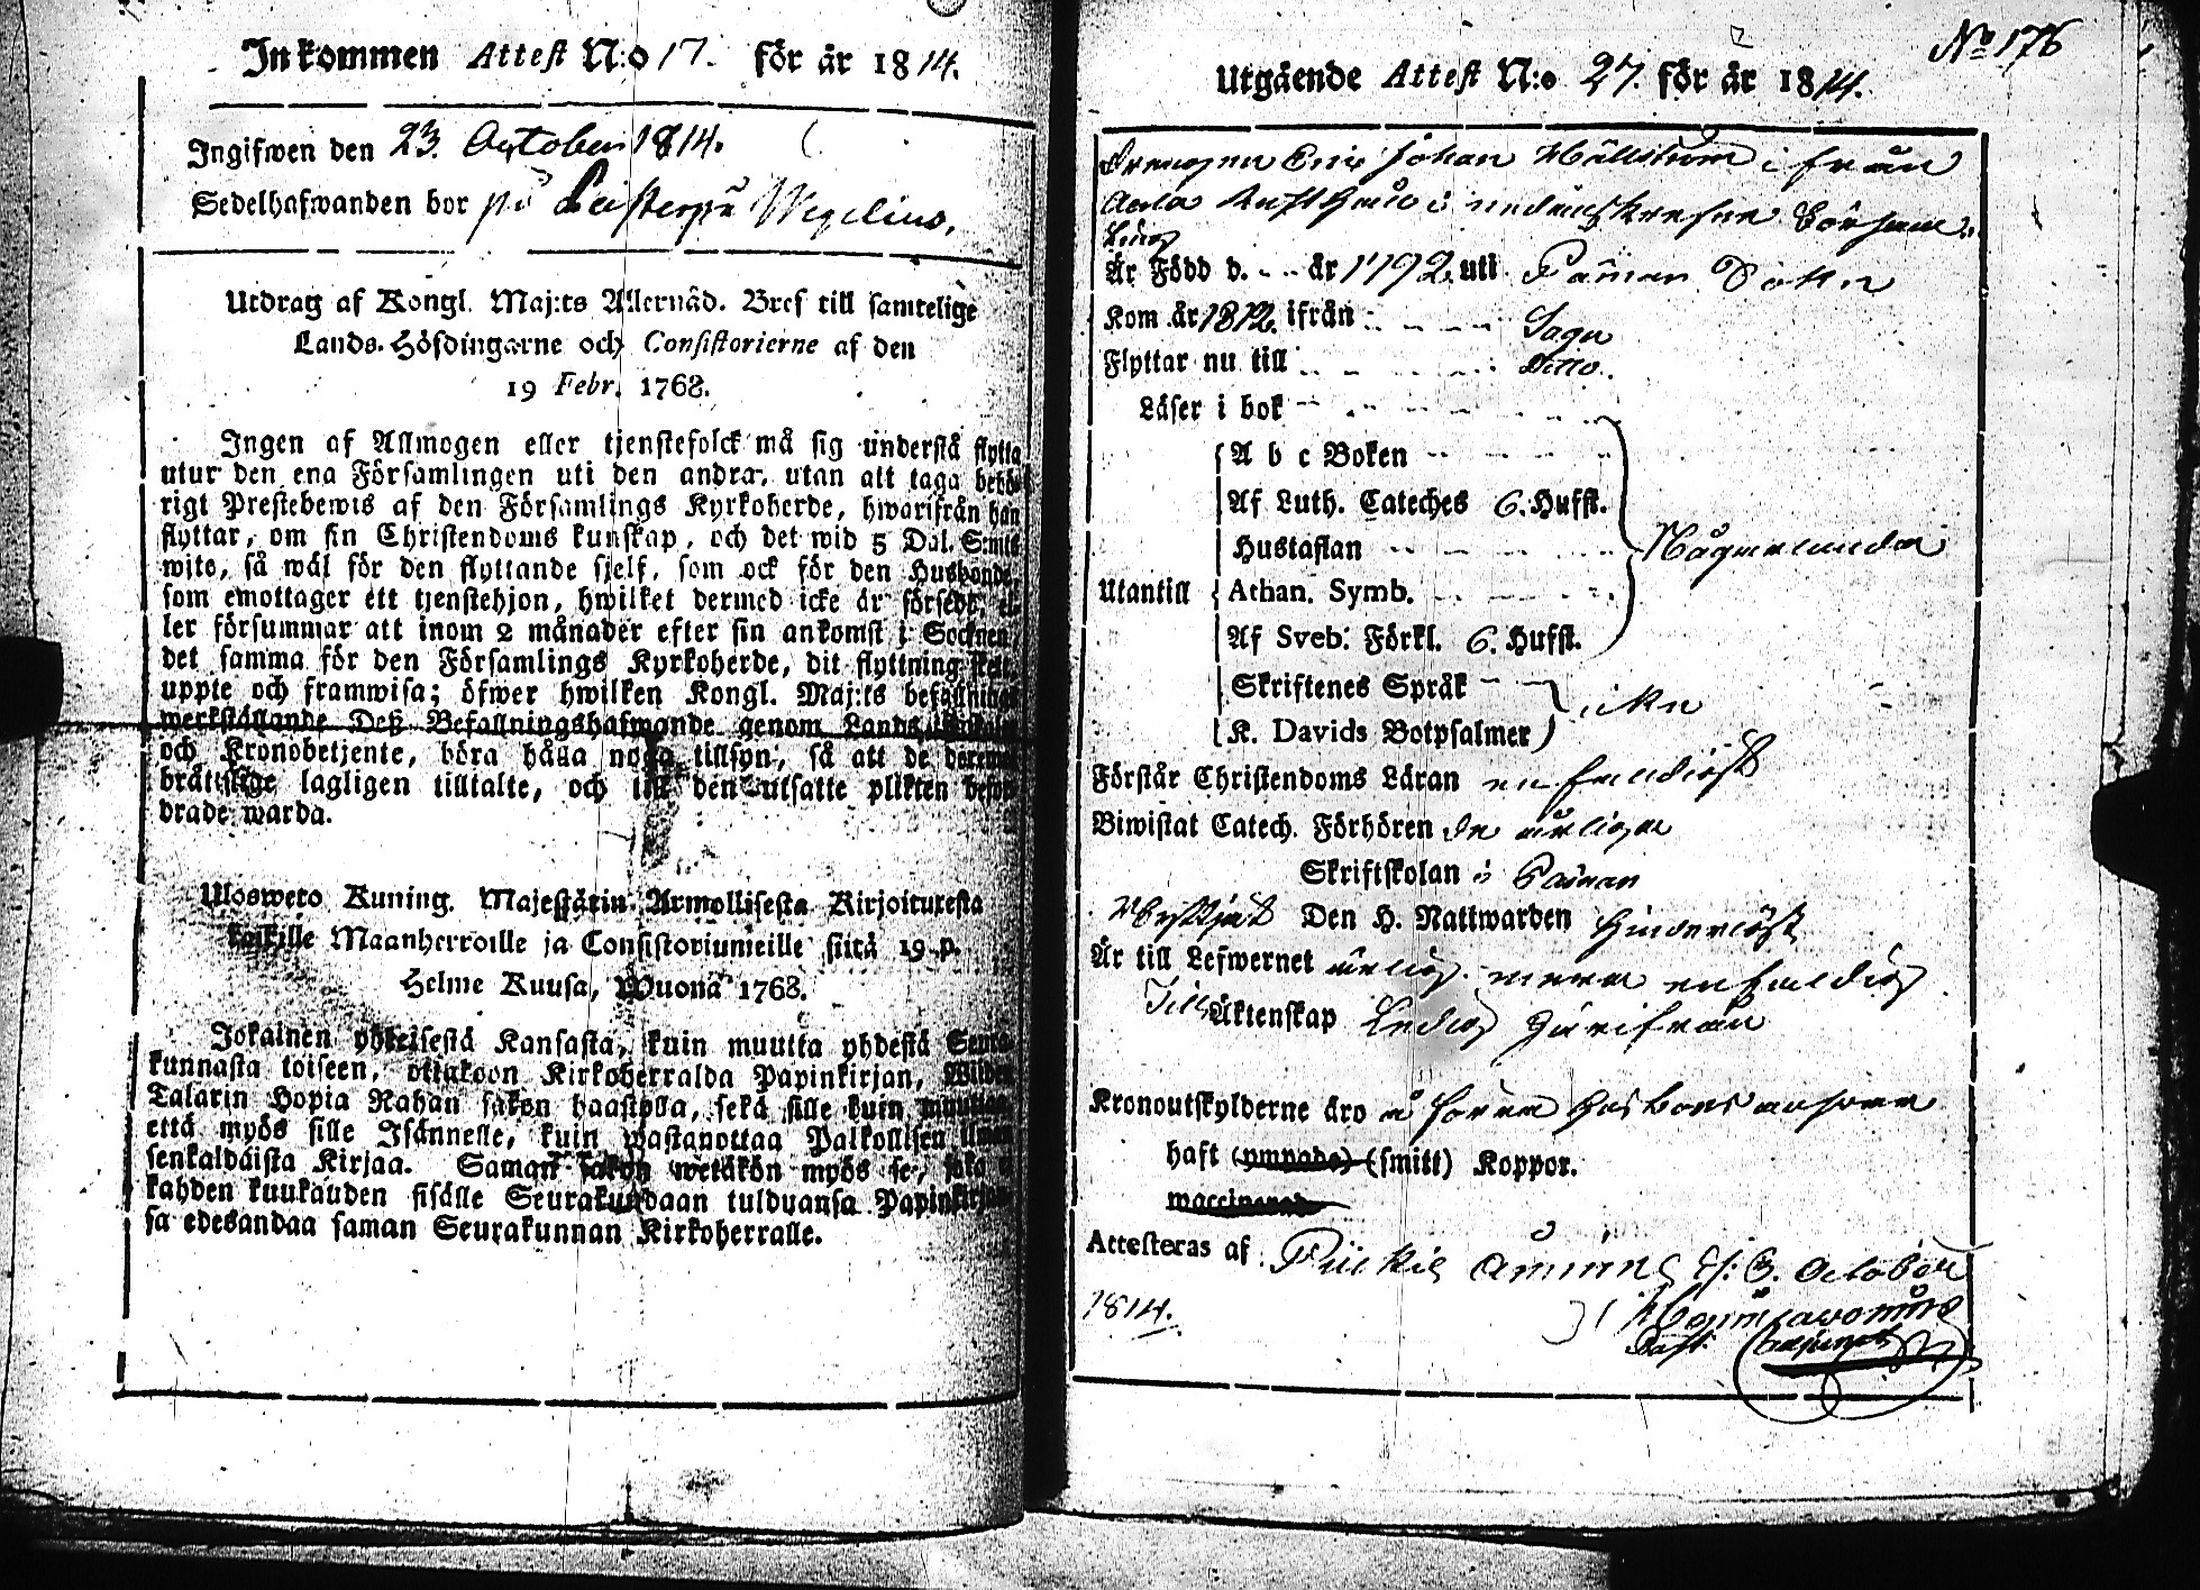 Inkommen Attest N:o 17. för år 1814.
Ingifwen den 23. October 1814.
Sedelhafwanden bor på Leistergå Wegelius.
Utdrag af Kongl. Maj:ts Allernåd. Bref till samtelige
Lands-Höfdingarne och Consistorierne af den
19 Febr. 1768.
Ingen af Allmogen eller tjenstefolck må sig understå flytta
utur den ena Församlingen uti den andra, utan att taga behö-
rigt Prestebewis af den Församlings Kyrkoherde, hwarifrån han
flyttar, om sin Christendoms kunskap, och det wid 5 Dal. S:mts
wite, så wäl för den flyttande sjelf, som ock för den Husbonde,
som emottager ett tjenstehjon, hwilket dermed icke är försedt, el-
ler försummar att inom 2 månader efter sin ankomst i Socknen
det samma för den Församlings Kyrkoherde, dit flyttning skett,
uppte och framwisa; öfwer hwilken Kongl. Maj:ts befallnings
werkställande Deß Befallningshafwande genom Lands
och Kronobetjente, böra hålla noga tillsyn, så att de
lagligen tilltalte, och till den utsatte plikten
drade warda.
Ulosweto Kuning. Majestätin Armollisesta Kirjoituxesta
kaikille Maanherroille ja Consistoriumeille siitä 19 p.
Helme Kuusa, Wuonä 1768.
Jokainen yhteisestä Kansasta, kuin muutta yhdestä Seura-
kunnasta toiseen, ottakoon Kirkoherralda Papinkirjan, Wiiden
Talarin Hopia Rahan sakon haastolla, sekä sille kuin muuttaa,
että myös sille Isännelle, kuin wastanottaa Palkollisen ilman
senkaldaista Kirjaa. Saman sakon wetäkön myös se, joka ei
kahden kuukauden sisälle Seurakundaan tulduansa Papinkirjan-
sa edesandaa saman Seurakunnan Kirkoherralle.
No 176
Utgående Attest N:o 27. för år 1814.
Drengen Eric Johan Wällström ifrån
Rusthåll i nedanskrefne Försam-
ling
Är Född d. - - år 1792. uti Paimar Sokn
Kom år 1812. ifrån - - - Sagu
Flyttar nu till - - - Ditto.
Läser i bok
A b c Boken
Af Luth. Cateches 6. Hufst.
Hustaflan
Någorlunda
Utantill Athan. Symb.
Af Sveb. Förkl. 6. Hufst.
Skriftenes Språk
icke
K. Davids Botpsalmer
Förstår Christendoms Läran enfaldigt
Biwistat Catech. Förhören de årliga
Skriftskolan i Paimar
Begått Den H. Nattwarden hinderlöst
Är till Lefwernet ärlig men enfaldig
Till Äktenskap Ledig härifrån
Kronoutskylderne äro å förra husbonds ansvar
haft (ympade) (smitt) Koppor.
waccinerad
Attesteras af Pückiö d. 3. October
1814.
Past. Adjunct